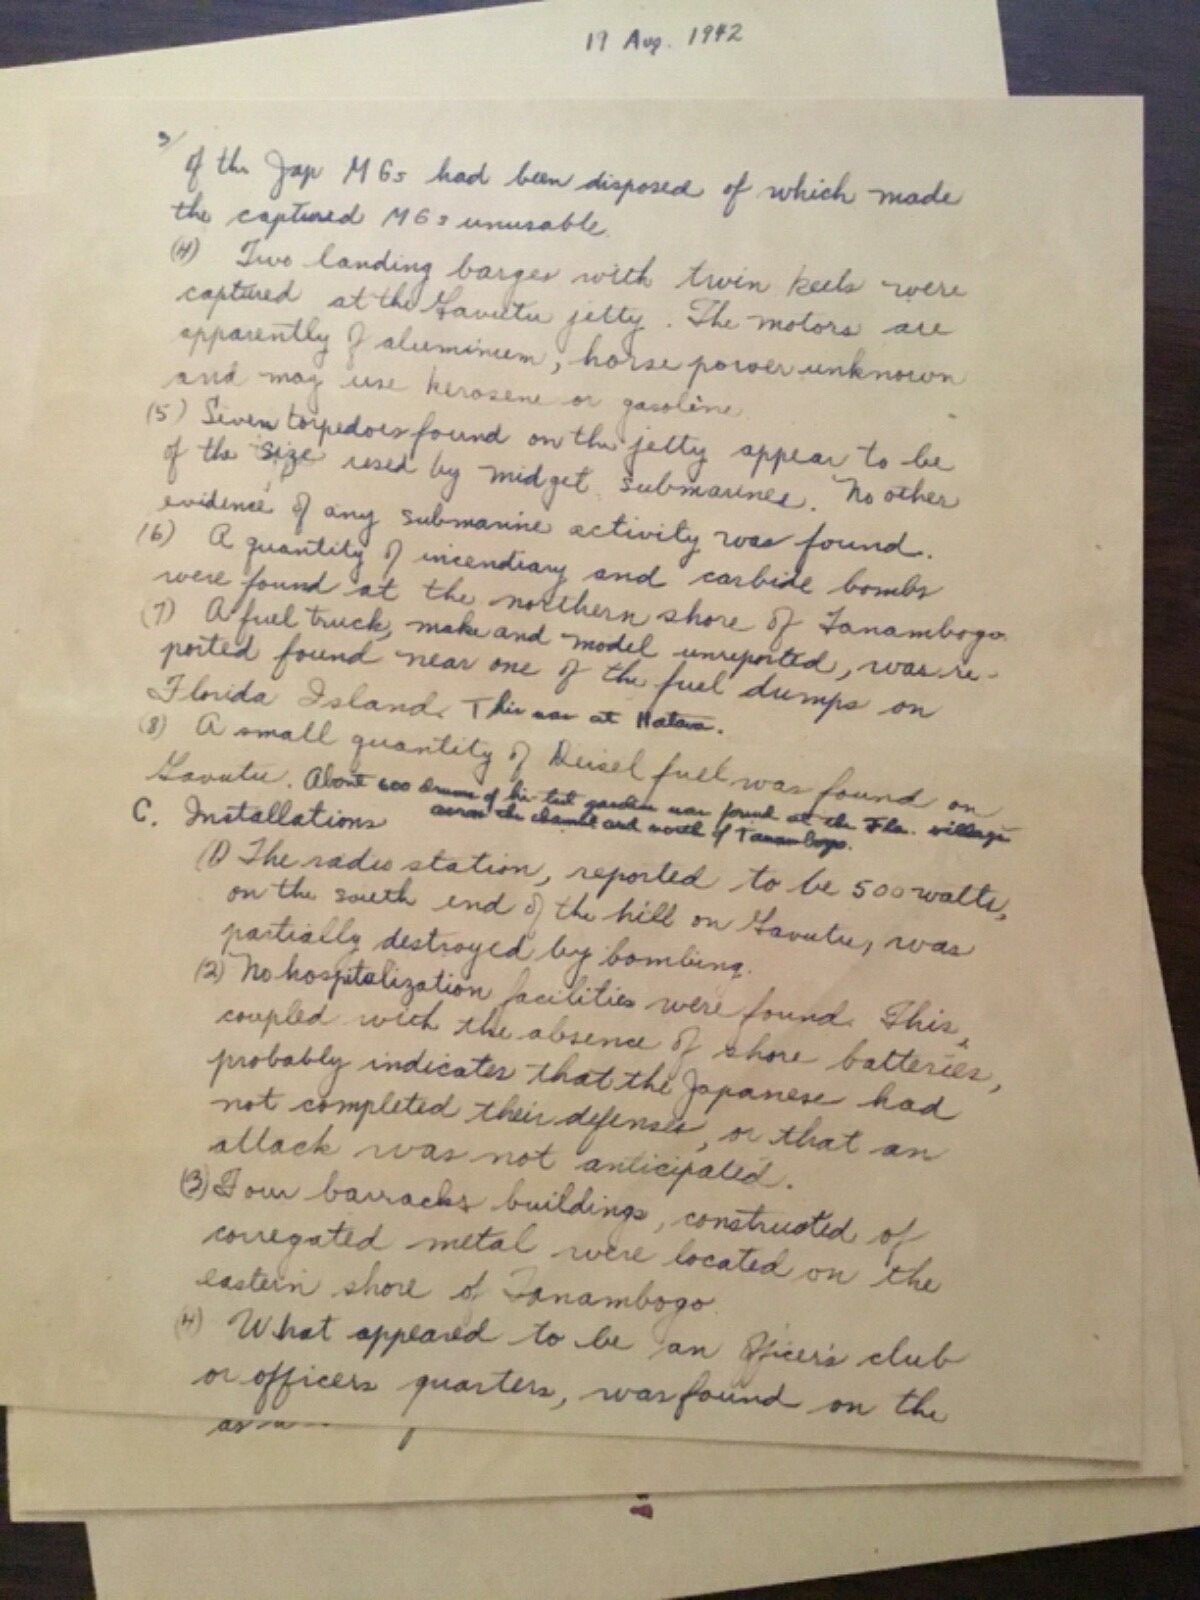 19 Aug. 1942
3/
of the Jap MGs had been disposed of which made
the captured MGs unusable.
(4) Two landing barges with twin keels were
captured at the Gavutu jetty. The motors are
apparently of aluminum, horse power unknown
and may use kerosene or gasoline.
(5) Seven torpedoes found on the jetty appear to be
of the size used by midget submarines. No other
evidence of any submarine activity was found.
(6) A quantity of incendiary and carbide bombs
were found at the northern shore of Tanambogo.
(7) A fuel truck, make and model unreported, was re-
ported found near one of the fuel dumps on
Florida Island. This was at Halavo.
(8) A small quantity of Deisel fuel was found on
Gavutu. About 600 drums of hi-test was found at the Fla. village
across the channel and north of Tanambogo.
C. Installations
(1) The radio station, reported to be 500 watts,
on the south end of the hill on Gavutu, was
partially destroyed by bombing.
(2) No hospitalization facilities were found. This,
coupled with the absence of shore batteries,
probably indicates that the Japanese had
not completed their defenses, or that an
attack was not anticipated.
(3) Four barracks buildings, constructed of
corregated metal were located on the
eastern shore of Tanambogo.
(4) What appeared to be an officer's club
or officers quarters, was found on the